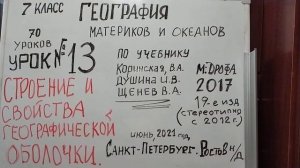 7 КЛАСС
ГЕОГРАФИЯ
МАТЕРИКОВ И ОКЕАНОВ
70 УРОКОВ
УРОК № 13
СТРОЕНИЕ И
СВОЙСТВА
ГЕОГРАФИЧЕСКОЙ
ОБОЛОЧКИ.
ПО УЧЕБНИКУ
КОРИНСКАЯ, В.А.
ДУШИНА И.В.
ЩЕНЕВ В.А.
М: ДРОФА
2017
19-е изд
(стереотипно
с 2012г.)
июнь, 2021 год,
САНКТ-ПЕТЕРБУРГ. РОСТОВ Н/Д